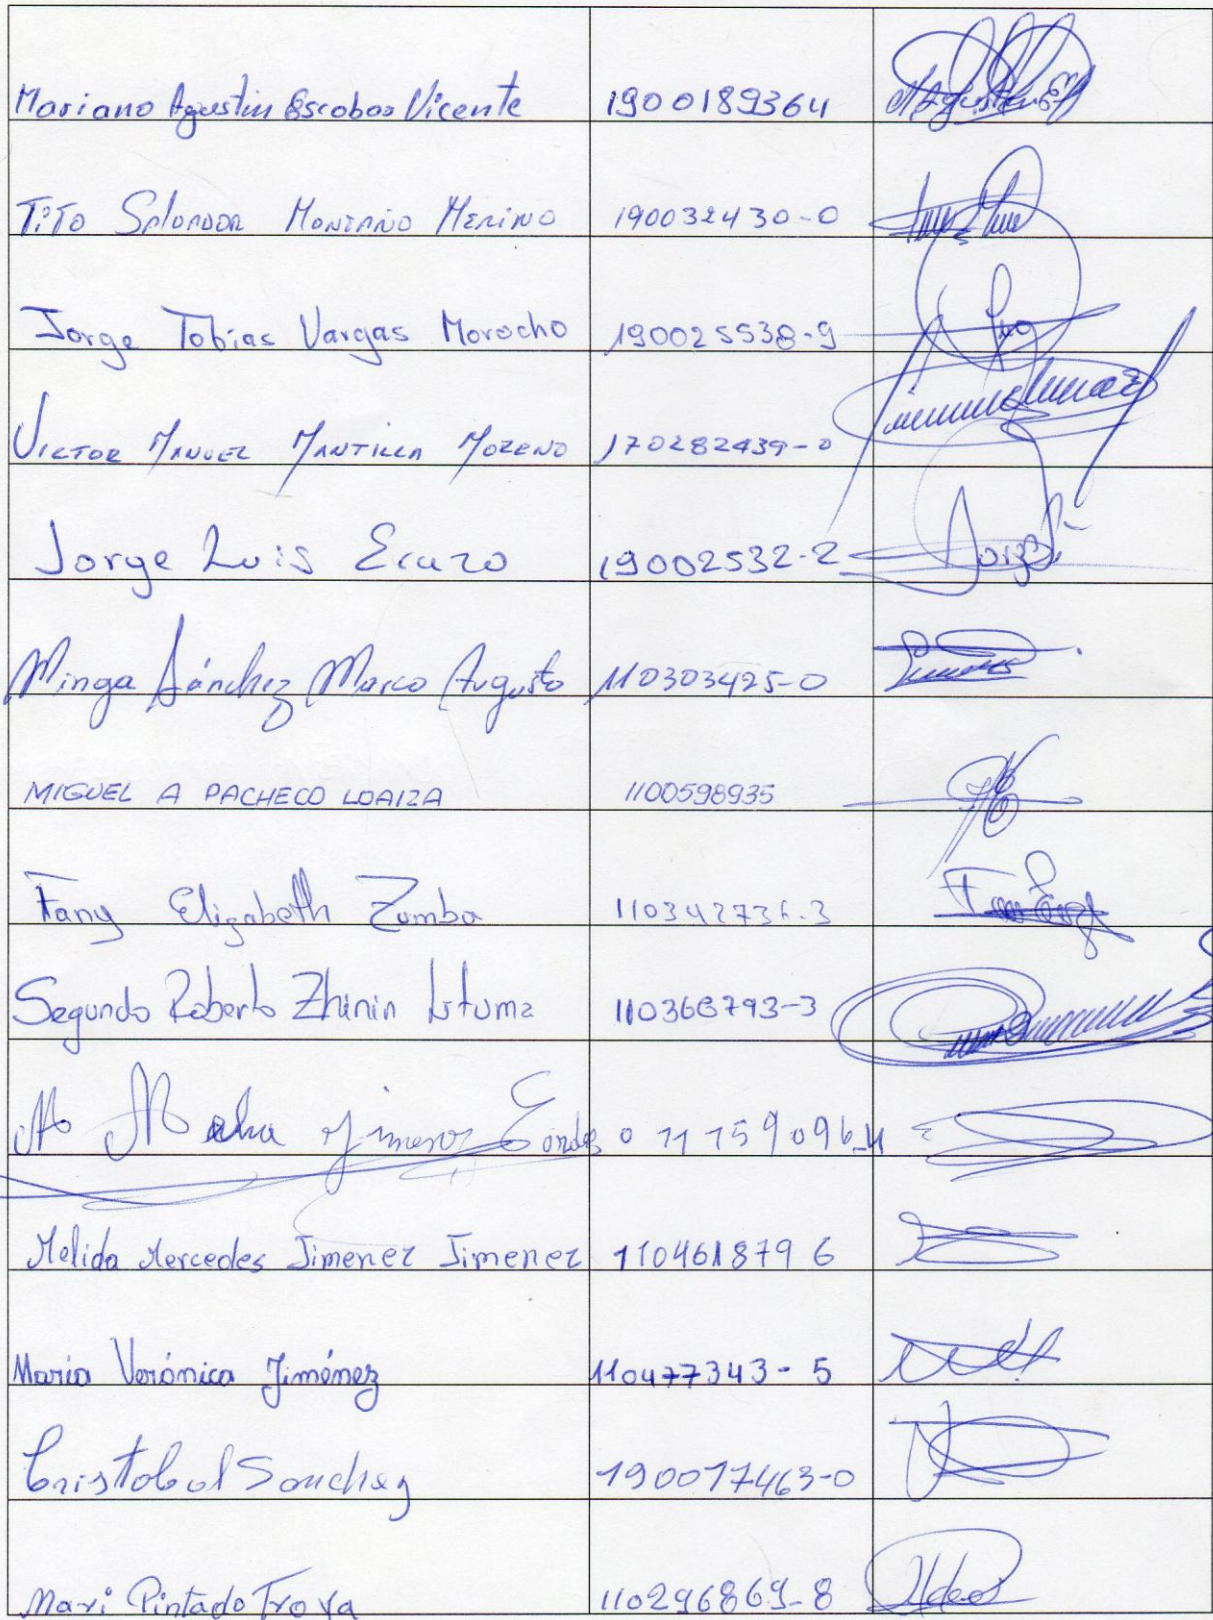 Mariano Agustin Escobar Vicente 1900189364
TiTo SALVADOR MONTAÑO MERINO 190032430-0
Jorge Tobias Vargas Morocho 190025538-9
VICTOR MANUEL MANTILLA MORENO 170282439-0
Jorge Luis Erazo 19002532-2 Jorge
Minga Sánchez Marco Augusto 110303425-0
MIGUEL A PACHECO LOAIZA 1100598935
Fany Elizabeth Zumba
Segundo Roberto Zhinin Lituma 110366793-3
Melida Mercedes Jimenez Jimenez 110461879 6
Maria Verónica Jiménez 110477343-5
Cristobal Sanchez 190017463-0
Mari Pintado Troya 110296869-8